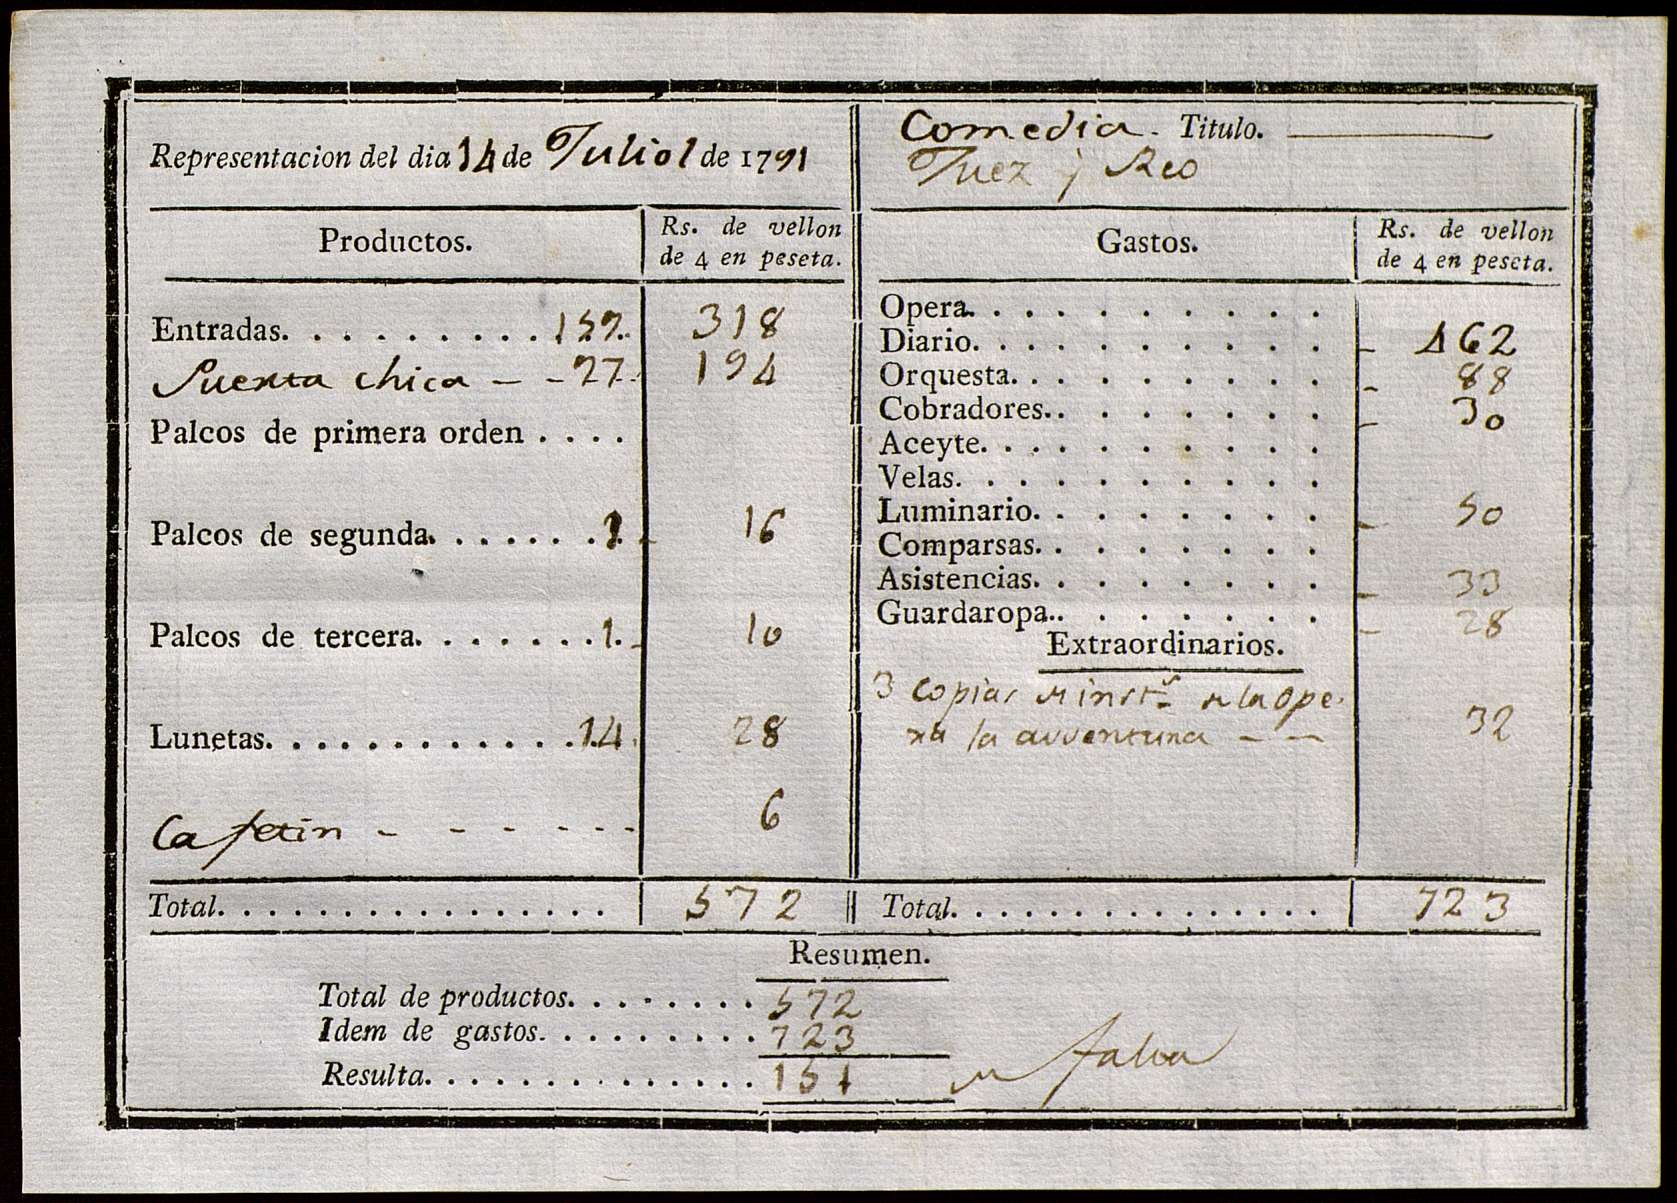 Representacion del dia 14 de Juliol de 1791
Comedia. Titulo.
Juez y Reo
Productos. Rs. de vellon de 4 en peseta.
Entradas. 159. 318
Puerta chica - - 97. 194
Palcos de primera orden
Palcos de segunda. 1. 16
Palcos de tercera. 1. 10
Lunetas. 14. 28
Cafetin - - - - - - 6
Total. 572
Gastos. Rs. de vellon de 4 en peseta.
Opera.
Diario. 462
Orquesta. 88
Cobradores. 30
Aceyte.
Velas.
Luminario. 50
Comparsas.
Asistencias. 33
Guardaropa. 28
Extraordinarios.
3 copias de inst.s de la ope-
ra la avventura - - 32
Total. 723
Resumen.
Total de productos. 572
Idem de gastos. 723
Resulta. 151 de falta